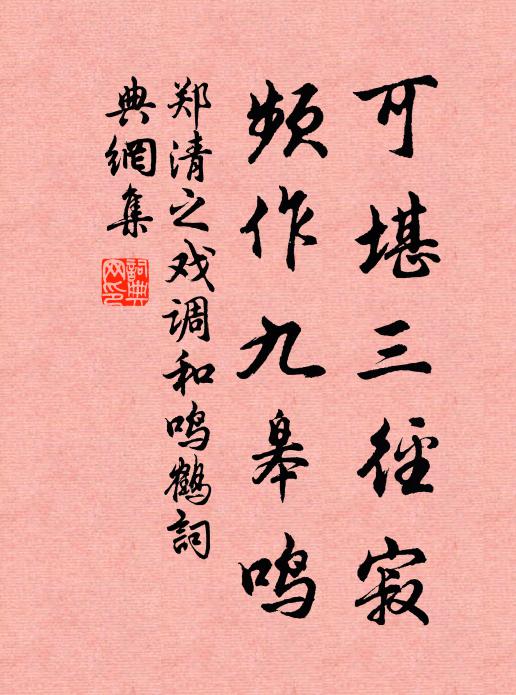 可堪三径寂
频作九皋鸣
郑清之戏调和鸣鹤詞
典網集
詞典网印